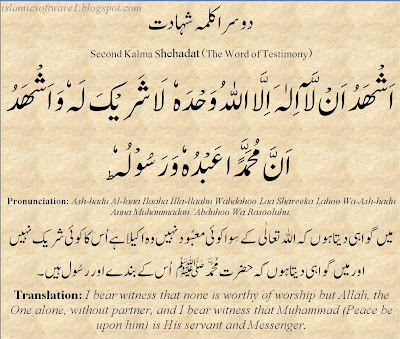 islamicsoftware1.blogspot.com
دوسرا کلمہ شہادت
Second Kalma Shehadat (The Word of Testimony)
اَشْهَدُ اَنْ لَّآ اِلٰهَ اِلَّا اللّٰهُ وَحْدَهٗ لَا شَرِيْكَ لَهٗ وَاَشْهَدُ
اَنَّ مُحَمَّدًا عَبْدُهٗ وَرَسُوْلُهٗ ؕ
Pronunciation: Ash-hadu Al-laaa Ilaaha Illa-llaahu Wahdahoo Laa Shareeka Lahoo Wa-Ash-hadu
Anna Muhammadan 'Abduhoo Wa Rasooluhu.
میں گواہی دیتا ہوں کہ اللہ تعالی کے سوا کوئی معبود نہیں وہ اکیلا ہے اُس کا کوئی شریک نہیں
اور میں گواہی دیتا ہوں کہ حضرت محمد ﷺ اُس کے بندے اور رسول ہیں۔
Translation: I bear witness that none is worthy of worship but Allah, the
One alone, without partner, and I bear witness that Muhammad (Peace be
upon him) is His servant and Messenger.